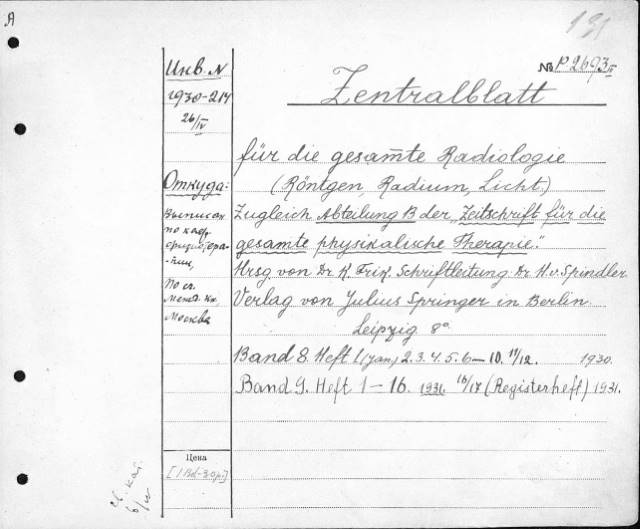 Я
131
№ P. 2693 IV
Инв. N
1930-214
26/IV
Zentralblatt
für die gesamte Radiologie
(Röntgen, Radium, Licht.)
Откуда:
Выписан
по каф.
физиотера-
пии,
По сч.
Межд. Кн.
Москва
Zugleich Abteilung B der "Zeitschrift für die
gesamte physikalische Therapie".
Hrsg. von Dr. K. Frik. Schriftleitung Dr. H. v. Spindler
Verlag von Julius Springer in Berlin
Leipzig 8°
Band 8. Heft 1 (Jan) 2. 3. 4. 5. 6 — 10. 11/12. 1930.
Band 9. Heft 1 — 16. 1931. 16/17 (Registerheft) 1931.
Цена